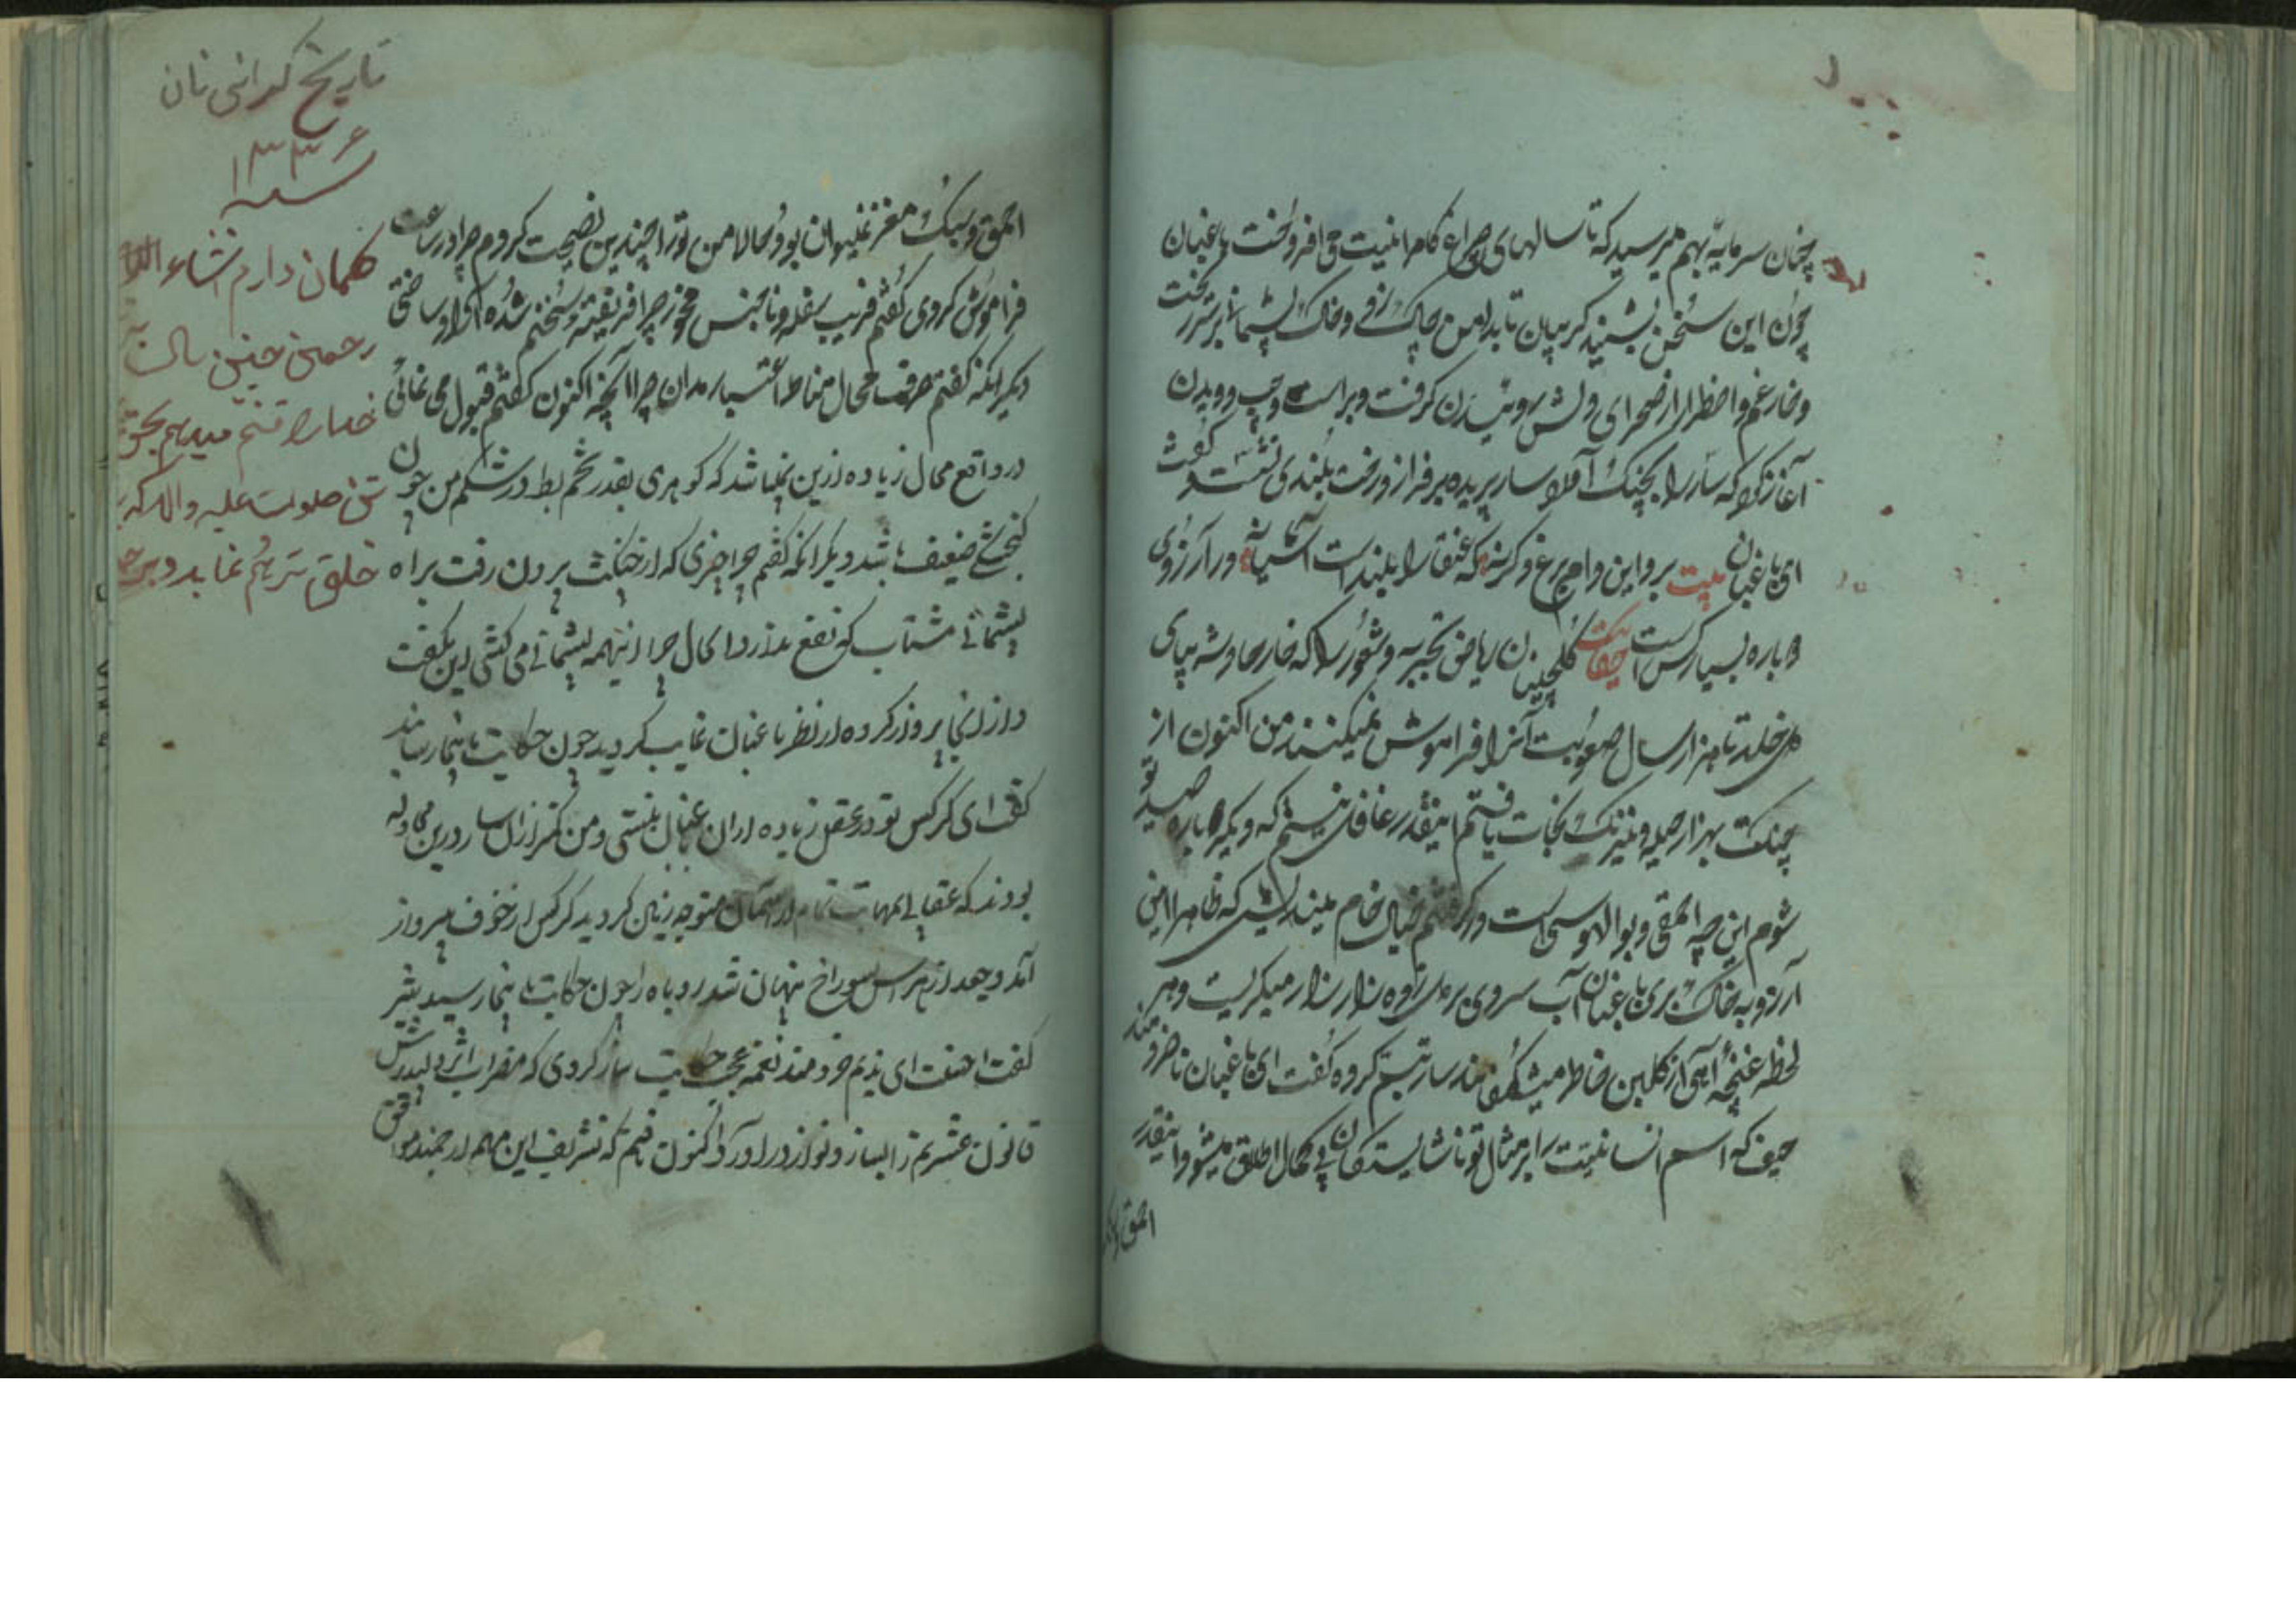 چنان سرمایهٔ بهم میرسید که تا سالهای چراغ کامرانیت می افروخت باغبان
چون این سخن بشنید گریبان تا بدامن چاک زد و خاک پشیمانی بر سر ریخت
و خار غم و اضطرار از صحرای دلش روئیدن گرفت و براست و چپ دویدن
آغاز کرد که سار را بچنگ آورد سار پریده بر فراز درخت بلندی نشست و گفت
ای باغبان بیت برو این دام بر مرغ دگر نه که عنقا را بلند است آشیانه در آرزوی
دوباره بسیار کس است حقا که گلچینان ریاض تجربه و شعور را که خار حادثه بپای
دل خلد تا هزار سال صعوبت آنرا فراموش نمیکنند من اکنون از
چنگت بهزار حیله و نیرنگ نجات یافتم اینقدر غافل نیستم که دیگر باره صید تو
شوم این چه احمقی و بوالهوسی است خیال خام میندیش که ظاهرا این
آرزو به خاک بری باغبان آب سردی بر دل زده زار زار میگریست و هر
لحظه غنچهٔ آهی از گلبن خاطر میشکفانید سار تبسم کرده گفت ای باغبان ناخردمند
حیف که اسم انسانیت بر امثال تو ناشایستگان بی کمال اطلاق میشود اینقدر
احمق و سبک
احمق و سبک مغز نمیتوان بود حالا من تو را چندین نصیحت کردم چرا در ساعت
فراموش کردی گفتم فریب سفله و ناجنس مخور چرا فریفته سخنم شده آزاد ساختی
دیگر آنکه گفتم حرف محال مناط اعتبار مدان چرا آنچه اکنون گفتم قبول می نمائی
در واقع محال زیاده از این نمیباشد که گوهری بقدر تخم بط در شکم من چون
گنجشکی ضعیف باشد دیگر آنکه گفتم چرا چیزی که از چنگت بیرون رفت براه
پشیمانی مشتاب که نفع ندارد الحال چرا اینهمه پشیمانی می کشی این بگفت
و از آنجا پرواز کرده از نظر باغبان غایب گردید چون حکایت باینجا رسانید
گفت ای کرکس تو در عقل زیاده از آن باغبان نیستی و من کمتر از آن سار در این محاوله
بودند که عقابی بمهابت تمام از آسمان متوجه زمین گردید کرکس از خوف بپرواز
آمد و جغد از هراس بسوراخ پنهان شد روباه را چون حکایت باینجا رسید شیر
گفت احسنت ای ندیم خردمند نغمه عجب حکایت ساز کردی که مضراب اثر دلپذیرش
قانون عشرتم را بساز و نواز در آورد اکنون فهم که تشریف این مهم ارجمند موافق
تاریخ گرانی نان
سنه ۱۳۳۶
گمان دارم انشاء الله
رحمتی چنین سال
خدا را قسم میدهم بحق
نبی صلوات علیه و آله که بر
خلق ترحم نماید و